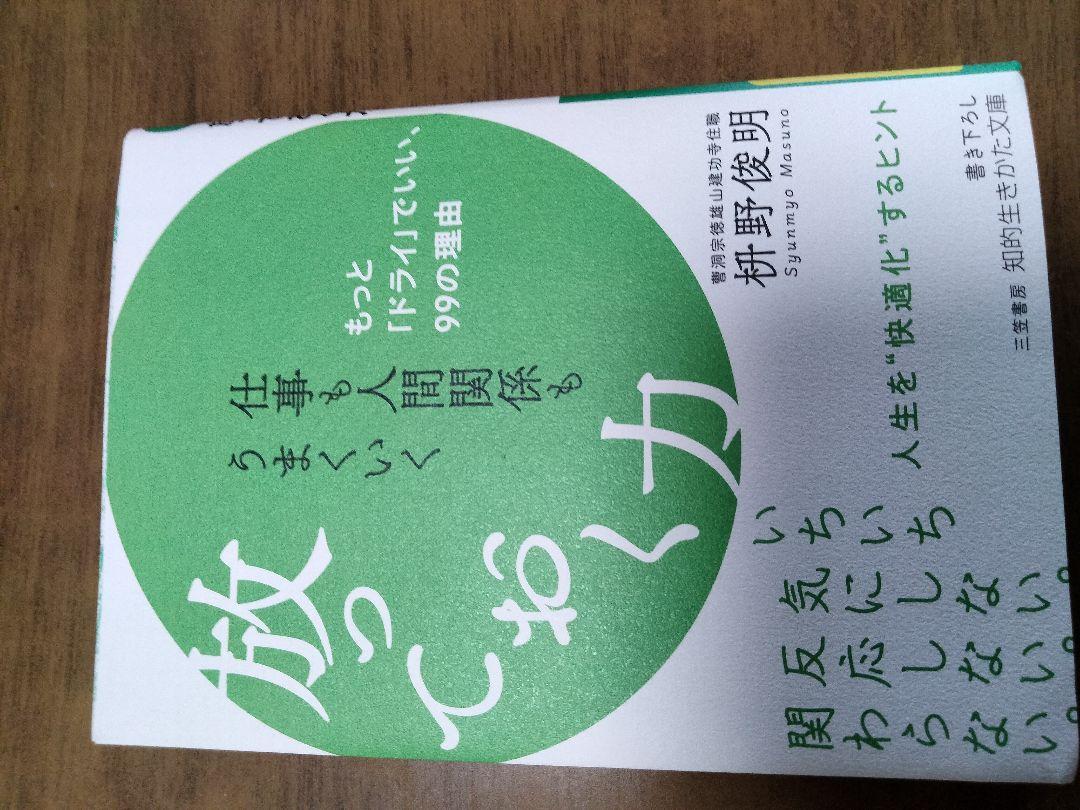 もっと
「ドライ」でいい、
99の理由
仕事も人間関係も
うまくいく
放っておく力
曹洞宗徳雄山建功寺住職
枡野俊明
Syunmyo Masuno
いちいち
気にしない。
反応しない。
関わらない。
人生を“快適化”するヒント
書き下ろし
三笠書房 知的生きかた文庫